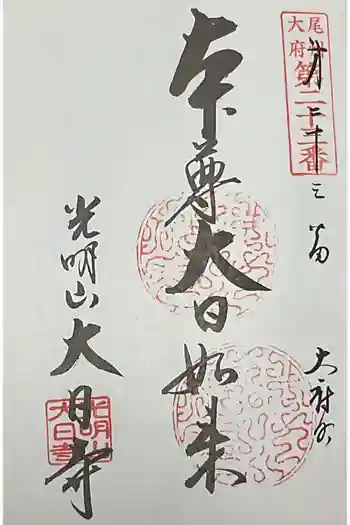 尾州
大府
第二十三番
第二十三番
大府
本尊大日如来
光明山大日寺
光明山
大日寺